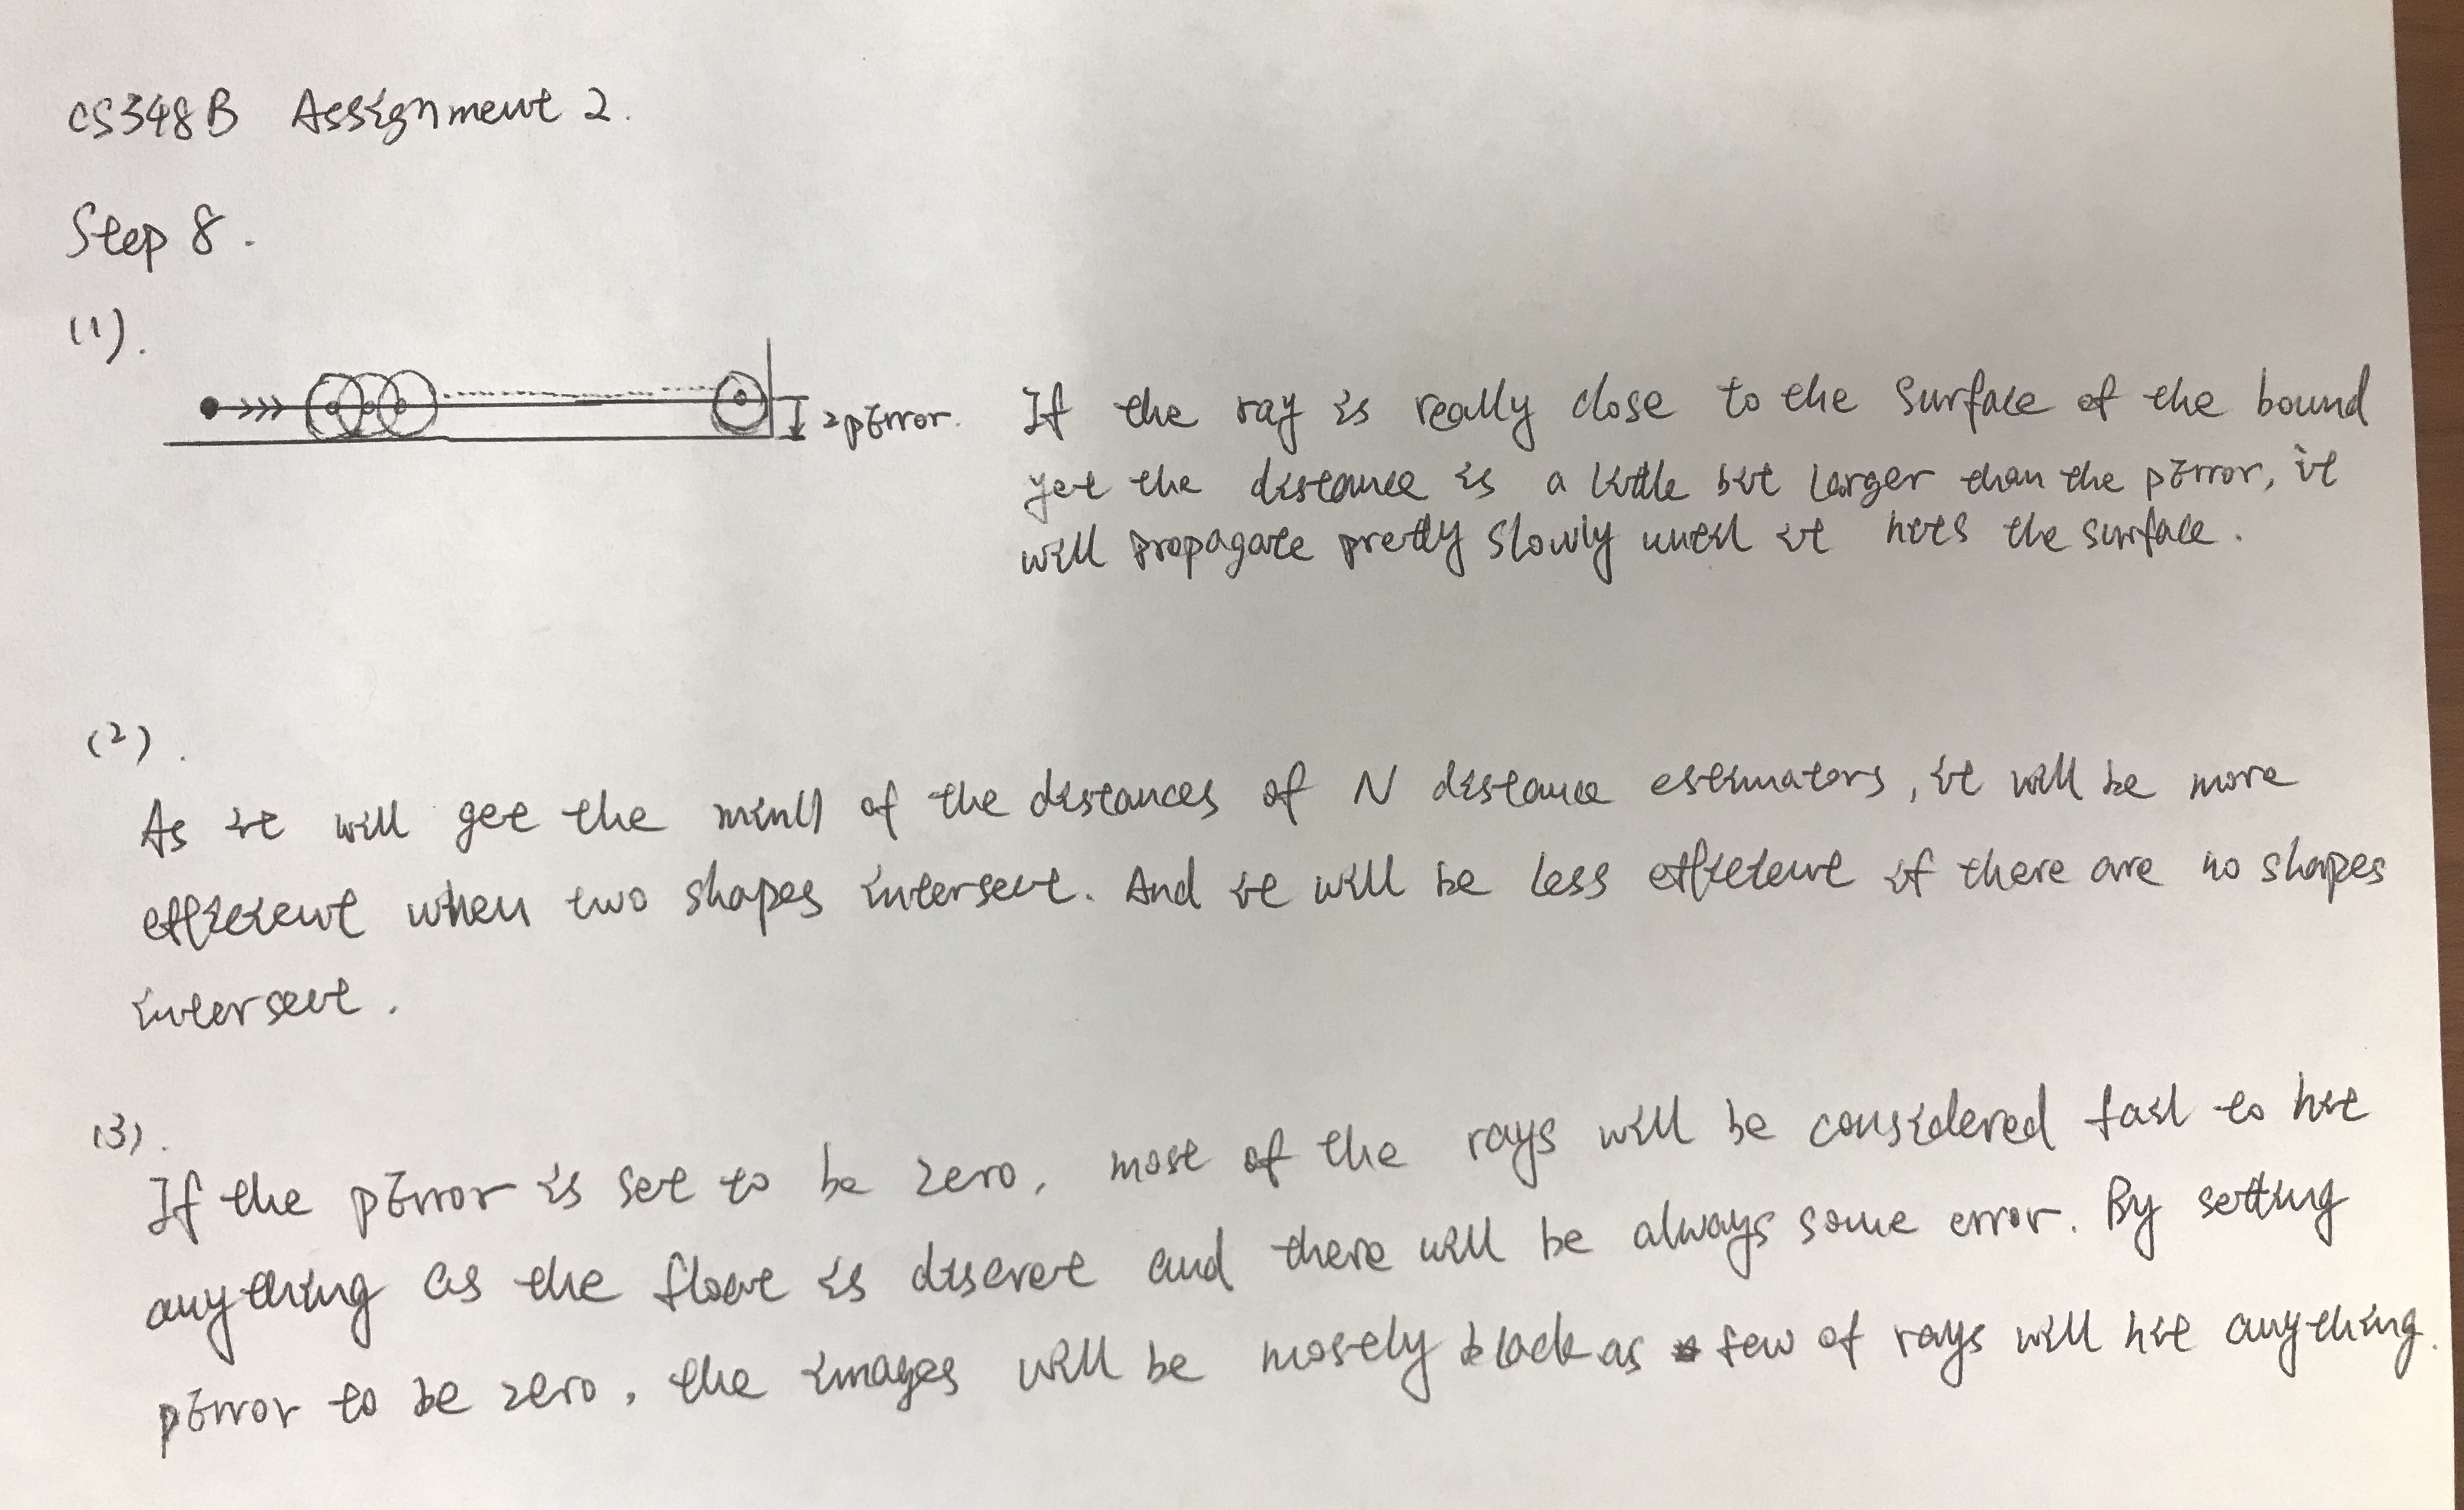 CS348B Assignment 2.
Step 8.
(1).
2pError.
If the ray is really close to the surface of the bound
yet the distance is a little bit larger than the pError, it
will propagate pretty slowly until it hits the surface.
(2).
As it will get the min() of the distances of N distance estimators, it will be more
efficient when two shapes intersect. And it will be less efficient if there are no shapes
intersect.
(3).
If the pError is set to be zero, most of the rays will be considered fail to hit
anything as the float is discret and there will be always some error. By setting
pError to be zero, the images will be mostly black as few of rays will hit anything.